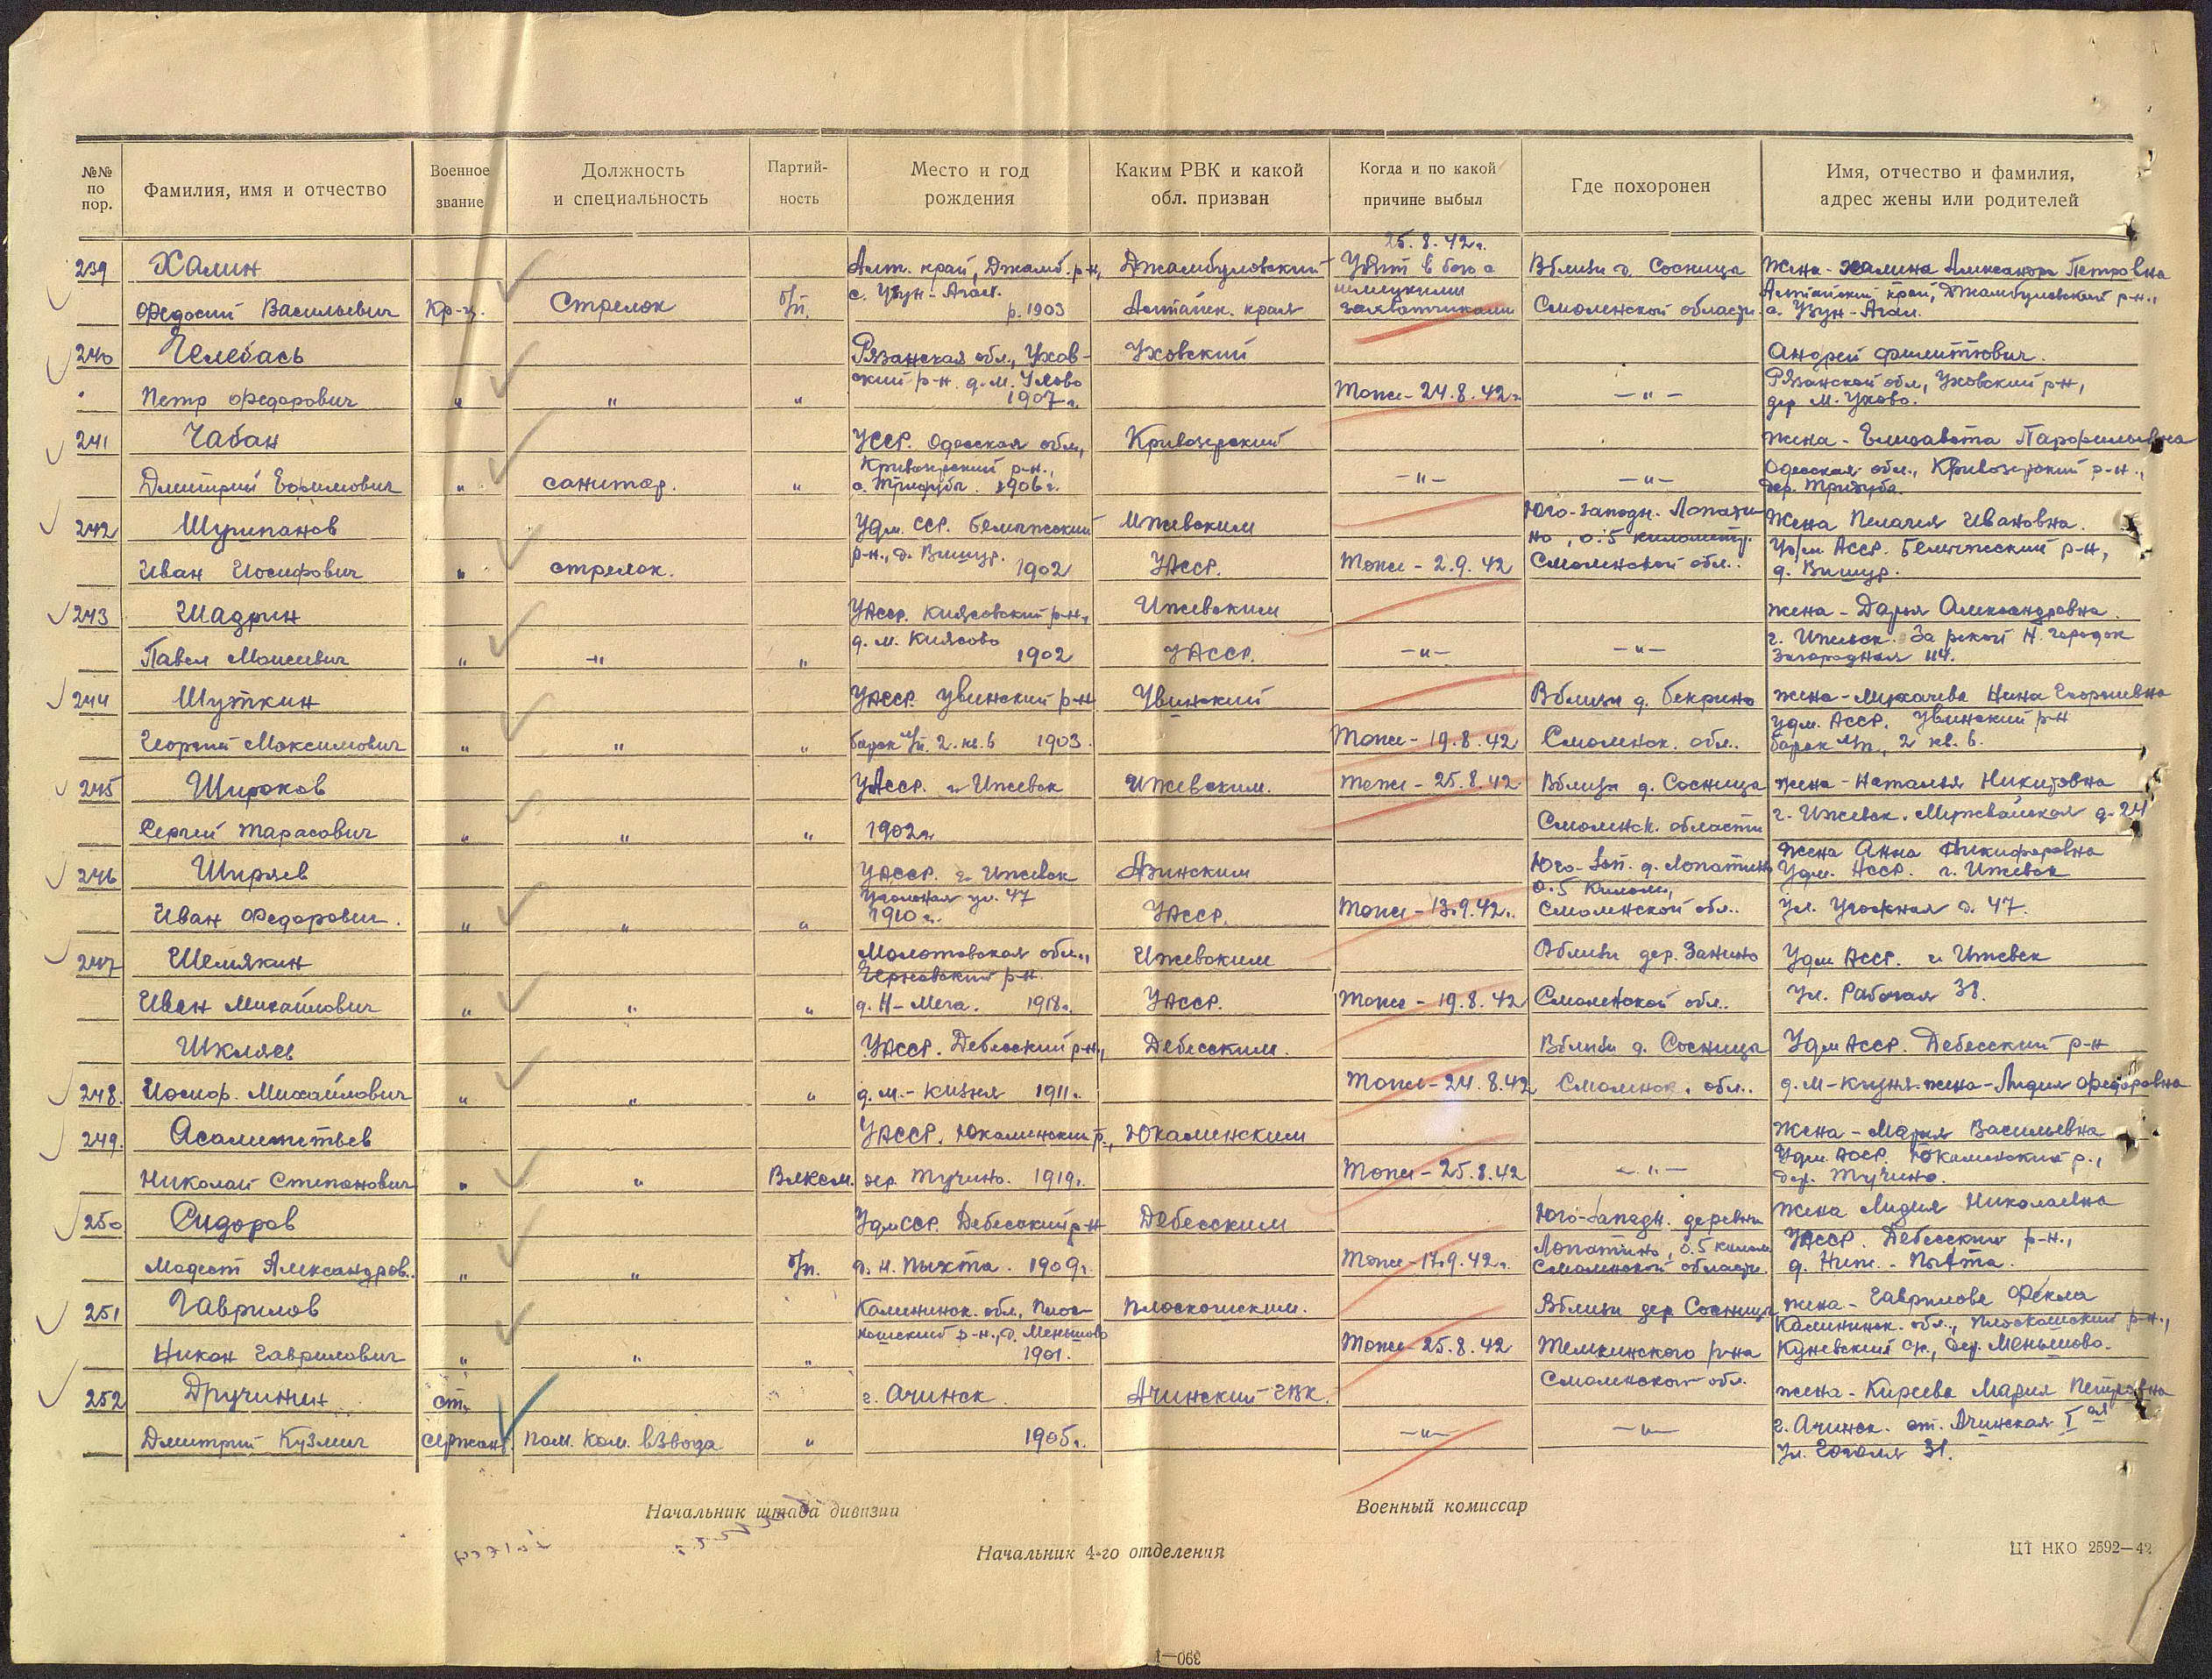 №№ по пор.
Фамилия, имя и отчество
Военное звание
Должность и специальность
Партий-ность
Место и год рождения
Каким РВК и какой обл. призван
Когда и по какой причине выбыл
Где похоронен
Имя, отчество и фамилия, адрес жены или родителей
25.8.42г.
239 Халин Алт. край, Джамб. р-н, Джамбуловский Убит в бою с Вблизи д. Сосница Жена - Халина Александра Петровна
с. Узун-Агач. немецкими Алтайский край, Джамбуловский р-н.,
Федосий Васильевич Кр-ц. Стрелок б/п. р. 1903 Алтайск. края захватчиками Смоленской области с. Узун-Агач.
240 Челебась Рязанская обл., Ухов- Уховский Андрей Филиппович.
ский р-н. д. М. Ухово Рязанской обл, Уховский р-н,
Петр Федорович " " " 1907 г. Тоже - 24.8.42г. -"- дер М. Ухово.
241 Чабан УССР. Одесская обл., Кривозерский Жена - Елизавета Парфильевна
Кривозерский р-н., Одесская обл., Кривозерский р-н.,
Дмитрий Ефимович " санитар. " с. Тридубы. 1906 г. -"- -"- дер. Тридуба.
242 Шурипанов Удм. ССР. Бемыжский Ижевским Юго-западн. Лопати- Жена Пелагея Ивановна.
р-н., д. Вишур. но, 0.5 километр. Удм АССР. Бемыжский р-н,
Иван Иосифович " стрелок. 1902 УАССР. Тоже - 2.9.42 Смоленской обл.. д. Вишур.
243 Шадрин УАССР. Киясовский р-н, Ижевским жена - Дарья Александровна.
д. М. Киясово г. Ижевск. За рекой Н. городок
Павел Моисеевич " -"- " 1902 УАССР. -"- -"- Загородная 114.
244 Шуткин УАССР. Увинский р-н Увинский Вблизи д. Бекрино жена - Михачева Нина Георгиевна
Удм. АССР. Увинский р-н
Георгий Максимович " " " барак 2. кв. 6 1903. Тоже - 19.8.42 Смоленск. обл.. барак 2 кв. 6.
245 Широков УАССР. г. Ижевск Ижевским. тоже - 25.8.42 Вблизи д. Сосница жена - Наталья Никитовна
Сергей Тарасович " " " 1902г. Смоленск. области г. Ижевск. д. 24
246 Ширяев УАССР. г. Ижевск Азинским Юго-Зап. д. Лопатино Жена Анна Никифоровна
ул. 47 0.5 килом., Удм. АССР. г. Ижевск
Иван Федорович. " " " 1910 г. УАССР. Тоже - 13.9.42г. Смоленской обл.. ул. д. 47.
247 Шемякин Молотовская обл., Ижевским Вблизи дер. Занино Удм АССР. г. Ижевск
р-н. ул. Рабочая 38.
Иван Михайлович " " " д. Н-Меча. 1918г. УАССР. Тоже - 19.8.42 Смоленской обл..
Шкляев УАССР. Дебесский р-н, Дебесским. Вблизи д. Сосница Удм АССР. Дебесский р-н
248. Иосиф. Михайлович " " " д. М.-Кизня 1911г. Тоже - 24.8.42 Смоленск. обл.. д. М-Кизня. жена - Лидия Федоровна
249. Асаметьев УАССР. Юкаменский р., Юкаменским Жена - Мария Васильевна
Удм. АССР. Юкаменский р.,
Николай Степанович " " Влксм. дер. Тучино. 1919г. Тоже - 25.8.42 -"- дер. Тучино.
250 Сидоров УдмССР. Дебесский р-н Дебесским Юго-западн. деревни Жена Лидия Николаевна
Лопатино, 0.5 килом. УАССР. Дебесский р-н.,
Модест Александров. " " б/п. д. Н. Пыхта. 1909г. Тоже - 17.9.42г. Смоленской области. д. Ниж. - Пыхта.
251 Гаврилов Калининск. обл., Плос- Плоскошским. Вблизи дер Сосница жена - Гаврилова Фекла
кошский р-н., д. Меньшово Калининск. обл., Плоскошский р-н.,
Никон Гаврилович " " " 1901. Тоже - 25.8.42 Темкинского р-на Куневский с/с., дер. Меньшово.
252 Дружинин ст. г. Ачинск Ачинский ГВК. Смоленской обл. жена - Киреева Мария Петровна
г. Ачинск. ст. Ачинская I ая
Дмитрий Кузмич сержант Пом. Ком. взвода " 1905г. -"- -"- ул. Гоголя 31.
Начальник штаба дивизии
Военный комиссар
Начальник 4-го отделения
ЦТ НКО 2592—42